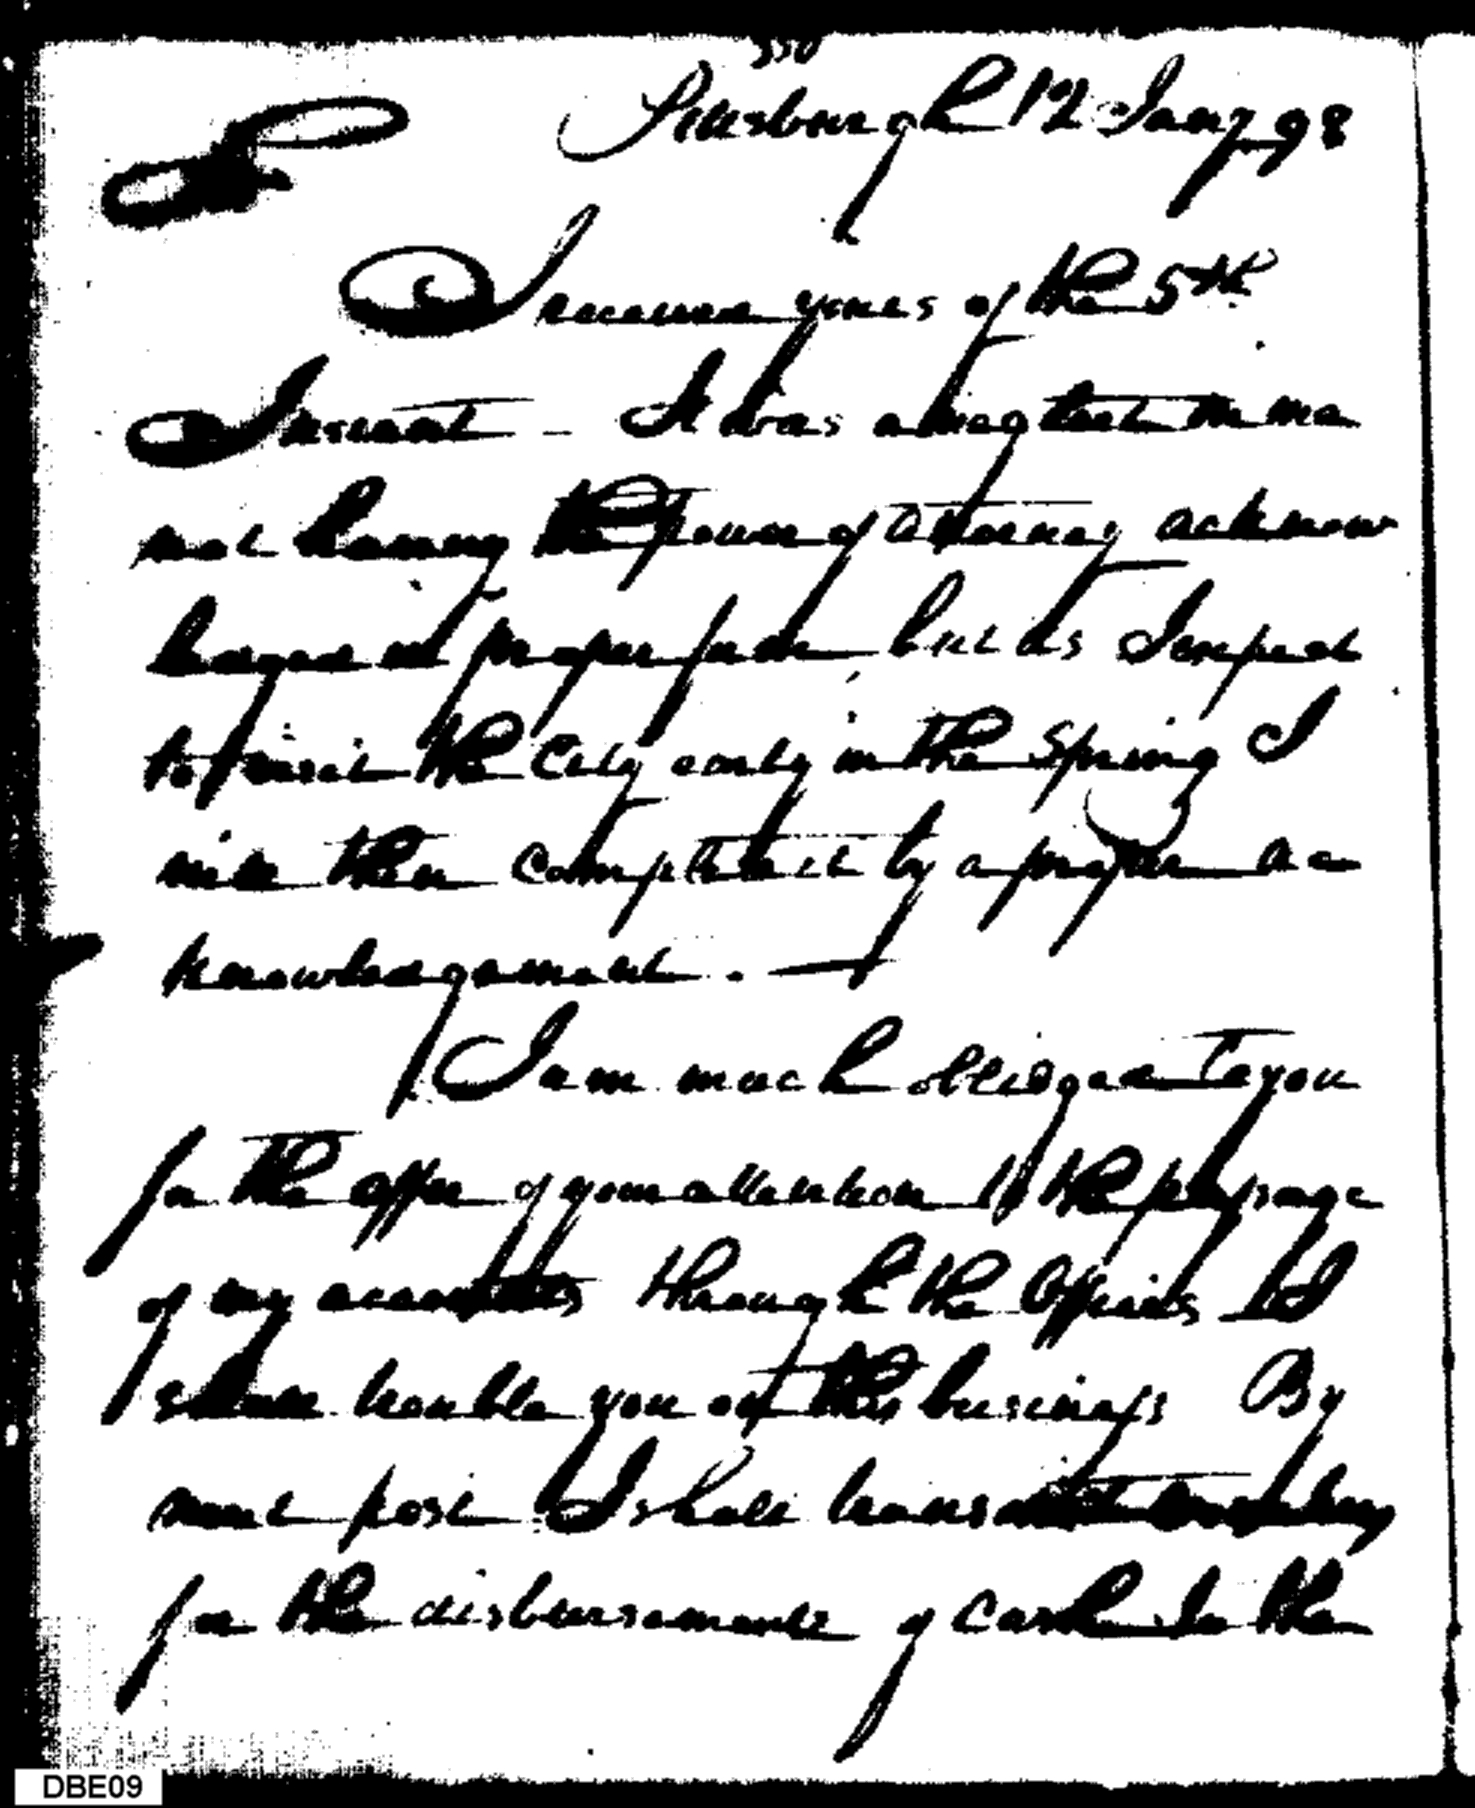 330
Pittsburgh 12 Jany 98
S
I received yours of the 5th
Instant - It was a neglect in me
not having the power of attorney acknow
ledged in proper form, but as I expect
to visit the City early in the Spring I
will then complete it by a proper ac
knowledgement. -
I am much obliedged to you
for the offer of your attention to the passage
of my accounts through the Offices
shall trouble you on this business By
next post I shall transmit
for the disbursements of cash to the
DBE09